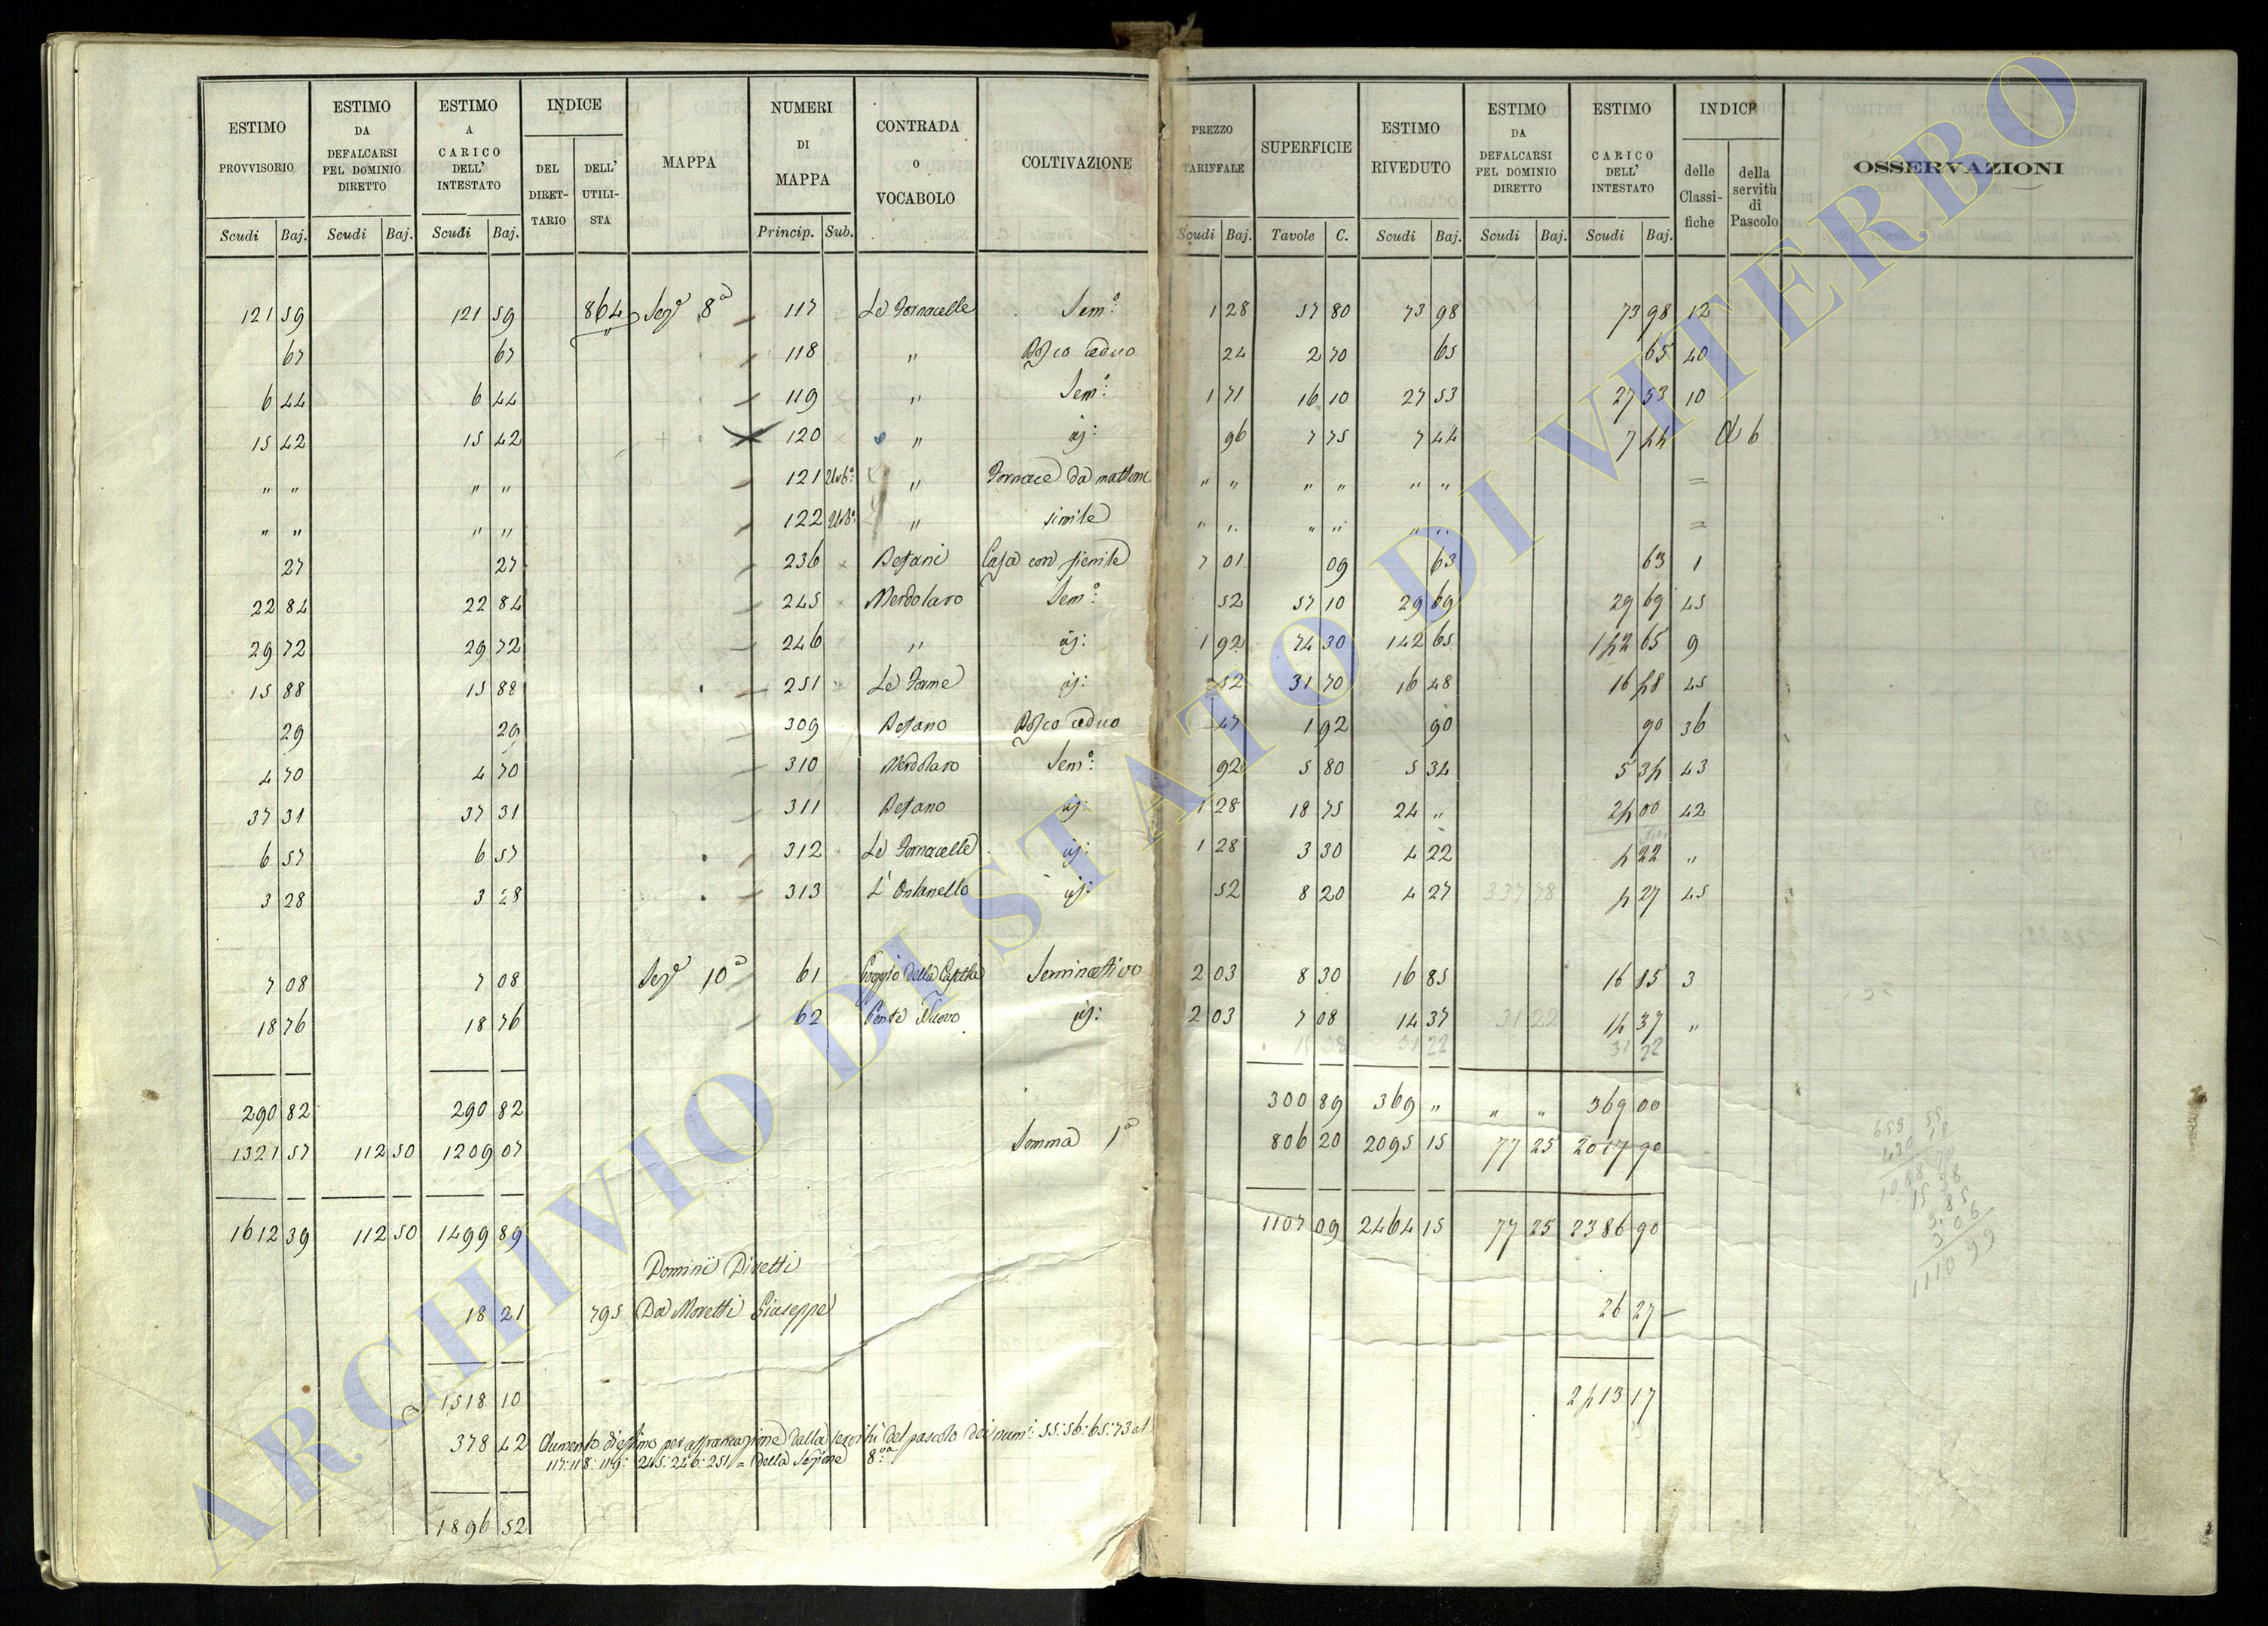 ESTIMO PROVVISORIO | ESTIMO DA DEFALCARSI PEL DOMINIO DIRETTO | ESTIMO A CARICO DELL' INTESTATO | INDICE DEL DIRET-TARIO | DELL' UTILI-STA | MAPPA | NUMERI DI MAPPA | CONTRADA O VOCABOLO | COLTIVAZIONE | PREZZO TARIFFALE | SUPERFICIE | ESTIMO RIVEDUTO | ESTIMO DA DEFALCARSI PEL DOMINIO DIRETTO | ESTIMO CARICO DELL' INTESTATO | INDICE delle Classi-fiche | della servitù di Pascolo | OSSERVAZIONI
Scudi Baj. | Scudi Baj. | Scudi Baj. | Princip. Sub. | Scudi Baj. | Tavole C. | Scudi Baj. | Scudi Baj. | Scudi Baj.
121 59 | 121 59 | 864 | Sez.e 8a | 117 | Le Fornacelle | Sem.o | 1 28 | 57 80 | 73 98 | 73 98 | 12
67 | 67 | 118 | " | Bosco ceduo | 24 | 2 70 | 65 | 65 | 40
6 44 | 6 44 | 119 | " | Sem.o | 1 71 | 16 10 | 27 53 | 27 53 | 10
15 42 | 15 42 | 120 | " | id: | 96 | 7 75 | 7 44 | 7 44 | A 6
" " | " " | 121 Urb.o | " | Fornace da mattoni | " " | " " | " " | =
" " | " " | 122 Urb.o | " | simile | " " | " " | " " | =
27 | 27 | 236 | Befani | Casa con fienile | 7 01 | 09 | 63 | 63 | 1
22 84 | 22 84 | 245 | Merdolaro | Sem.o | 52 | 57 10 | 29 69 | 29 69 | 45
29 72 | 29 72 | 246 | " | id: | 1 92 | 74 30 | 142 65 | 142 65 | 9
15 88 | 15 88 | 251 | Le Forme | id: | 52 | 31 70 | 16 48 | 16 48 | 45
29 | 29 | 309 | Befano | Bosco ceduo | 47 | 1 92 | 90 | 90 | 36
4 70 | 4 70 | 310 | Merdolaro | Sem.o | 92 | 5 80 | 5 34 | 5 34 | 43
37 31 | 37 31 | 311 | Befano | id: | 1 28 | 18 75 | 24 " | 24 00 | 42
6 57 | 6 57 | 312 | Le Fornacelle | id: | 1 28 | 3 30 | 4 22 | 4 22 | "
3 28 | 3 28 | 313 | L'Ontanello | id: | 52 | 8 20 | 4 27 | 337 78 | 4 27 | 45
7 08 | 7 08 | Sez.e 10a | 61 | Poggio della | Seminativo | 2 03 | 8 30 | 16 85 | 16 85 | 3
18 76 | 18 76 | 62 | Ponte Nuovo | id: | 2 03 | 7 08 | 14 37 | 31 22 | 14 37 | "
31 22 | 31 22
290 82 | 290 82 | 300 89 | 369 " | " " | 369 00
1321 57 | 112 50 | 1209 07 | Somma 1a | 806 20 | 2095 15 | 77 25 | 2017 90
1612 39 | 112 50 | 1499 89 | 1107 09 | 2464 15 | 77 25 | 2386 90
Dominii Diretti
18 21 | 795 | Da Moretti Giuseppe | 26 27
1518 10 | 2413 17
378 42 | Aumento d'estimo per affrancazione della servitù del pascolo dei num: 55: 56: 65: 73 al
117: 118: 119: 245: 246: 251 = della Sezione 8.a
1896 52
ARCHIVIO DI STATO DI VITERBO